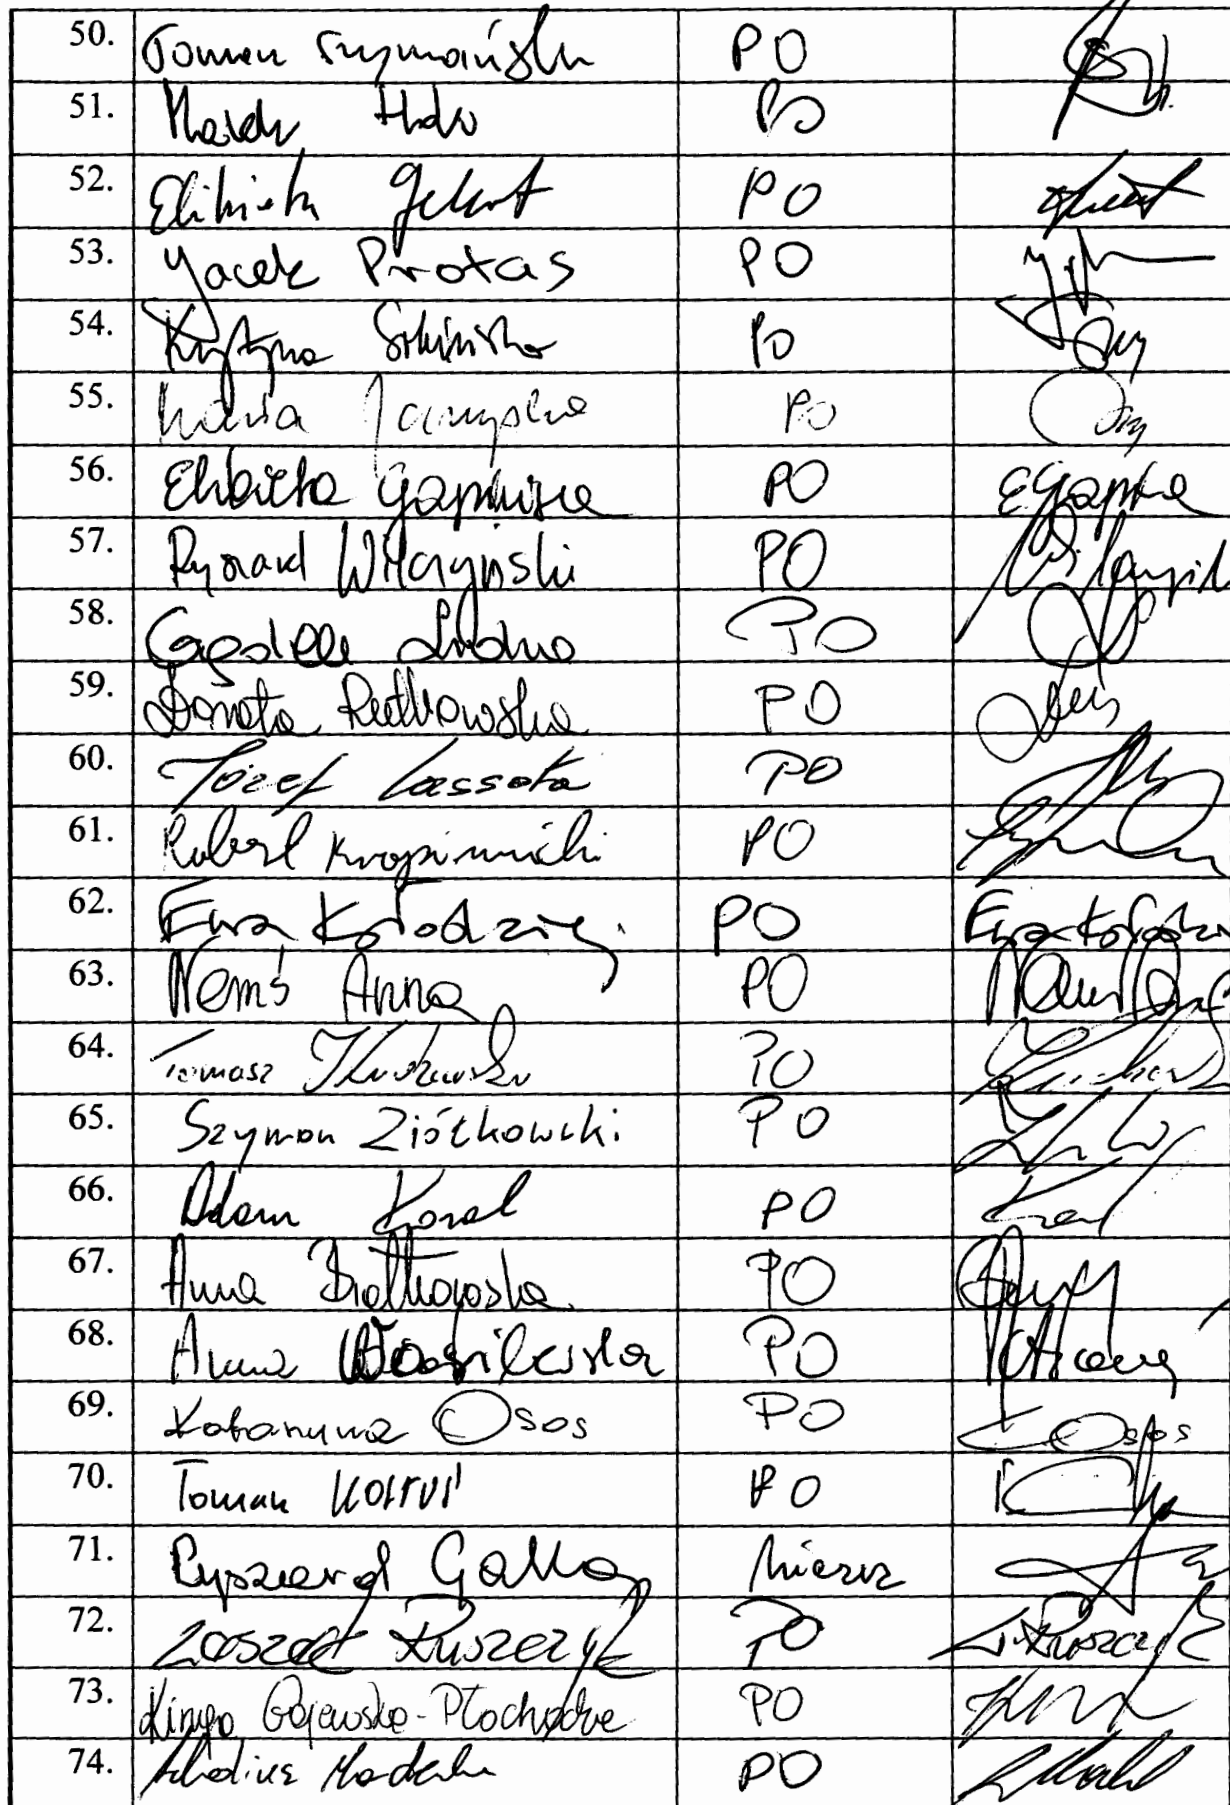 50. Tomasz Szymański PO
51. Marek PO
52. Elżbieta Gelert PO
53. Jacek Protas PO
54. Krystyna Sibińska PO
55. Maria Janyska PO
56. Elżbieta Gapińska PO
57. Ryszard Wilczyński PO Wilczyńsk
58. PO
59. Dorota Rutkowska PO
60. Józef Lassota PO
61. Robert Kropiwnicki PO
62. Ewa Kołodziej PO Ewa Kołodzi
63. Nemś Anna PO
64. Tomasz Kucharski PO
65. Szymon Ziółkowski PO
66. Adam Korol PO
67. Anna Białkowska PO
68. Anna Wasilewska PO
69. Katarzyna Osos PO Osos
70. Tomasz Kostuś PO
71. Ryszard Galla Niezrz
72. Leszek Ruszczyk PO L. Ruszczyk
73. Kinga Gajewska-Płochocka PO
74. Arkadiusz PO